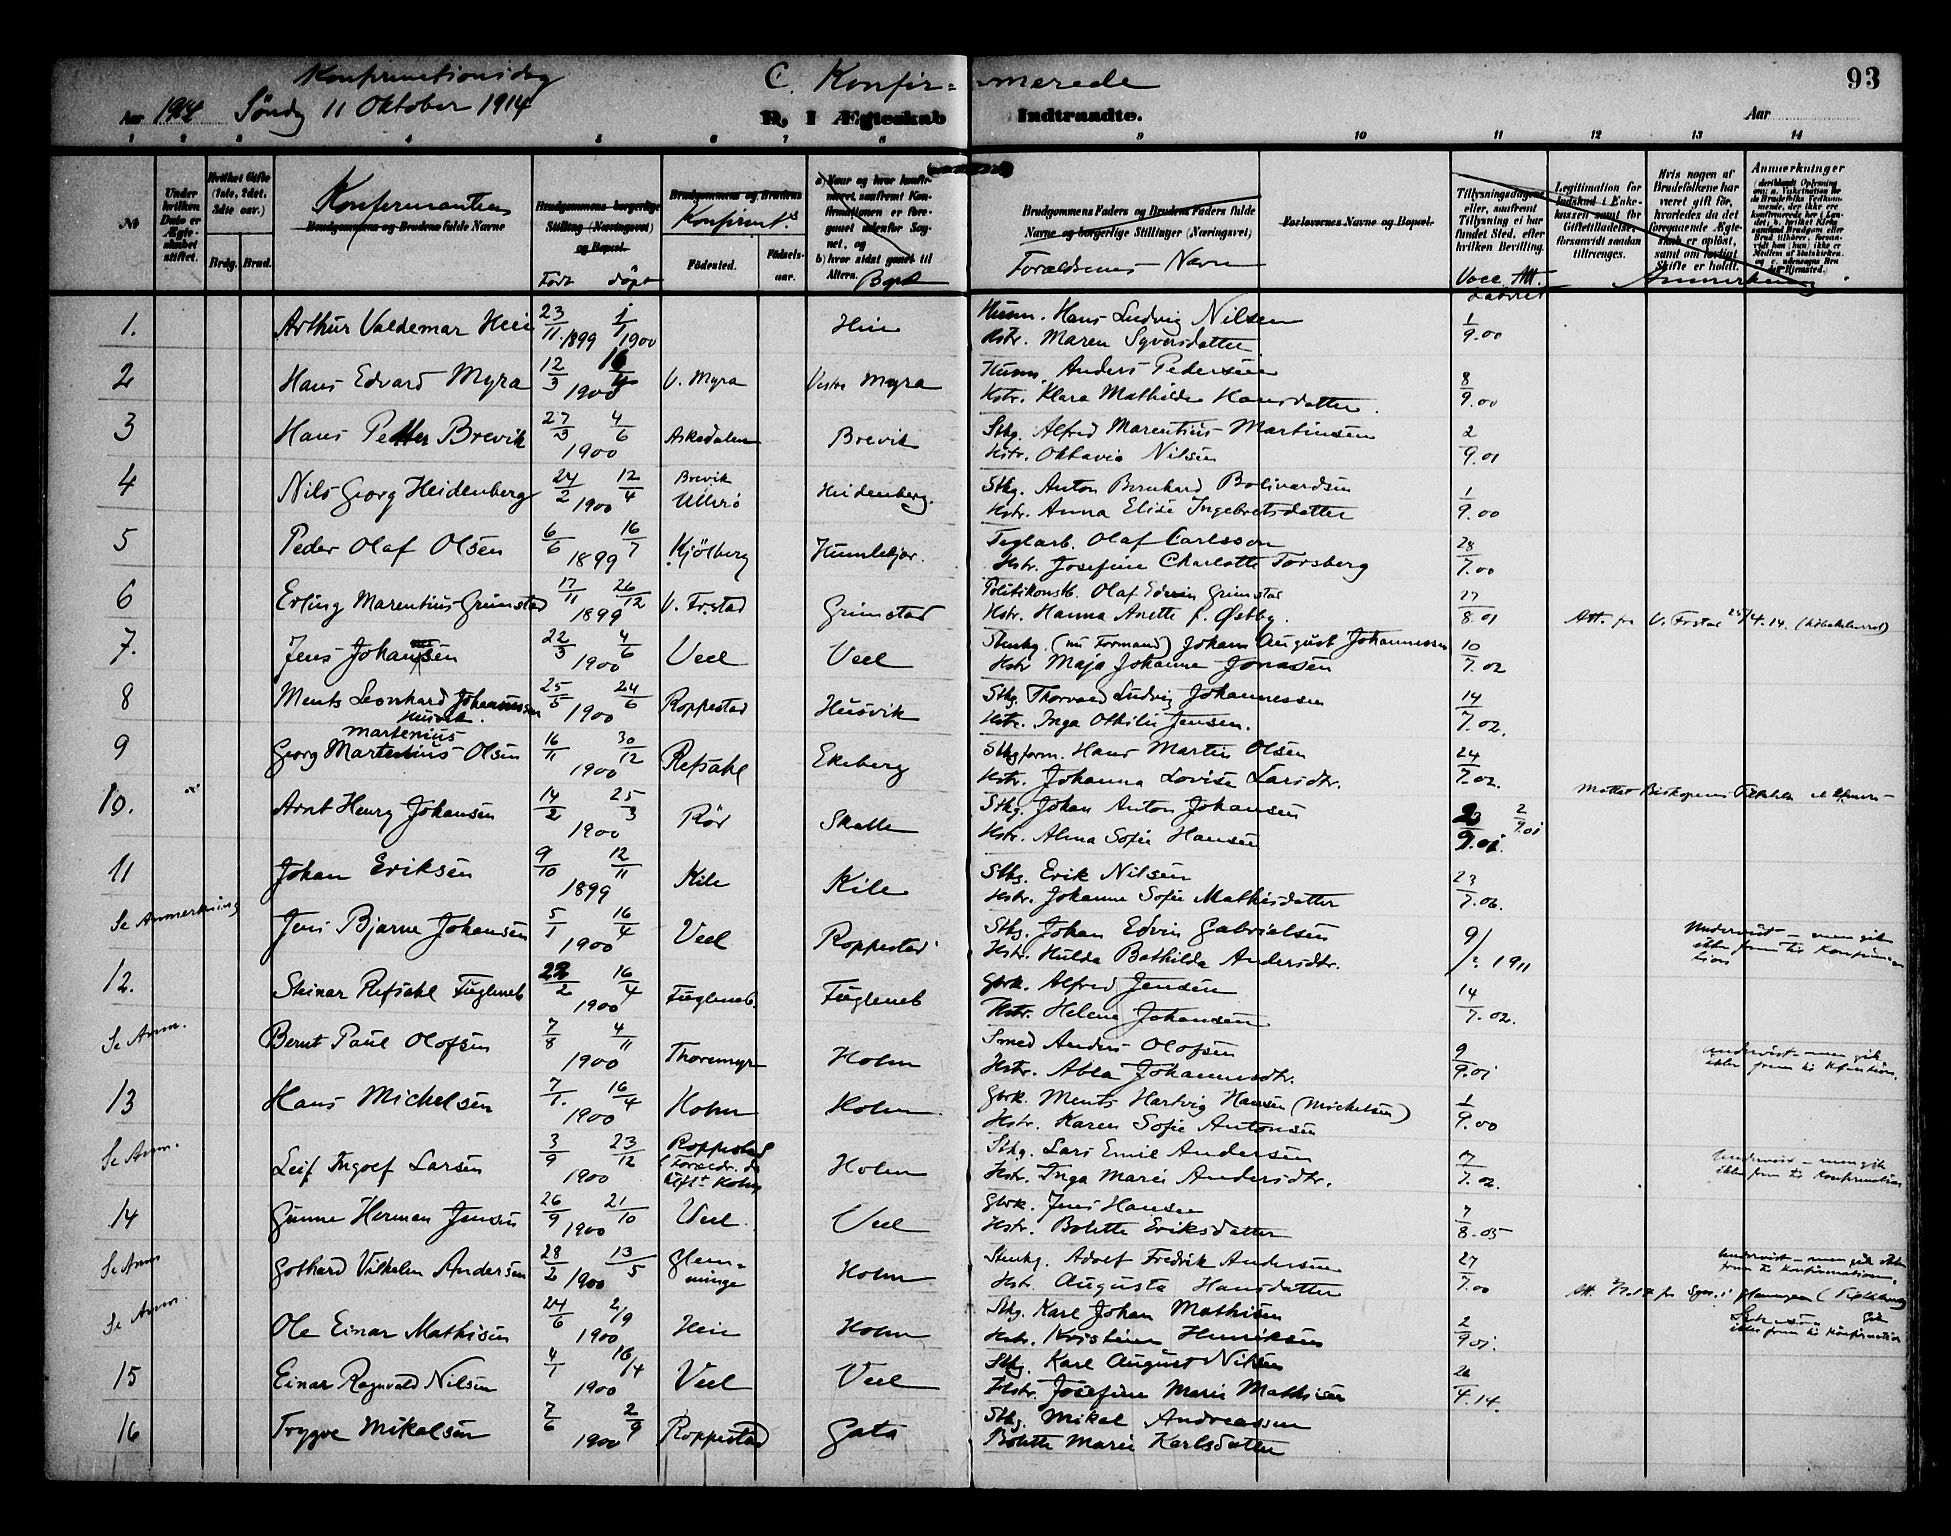 Konfirmationsdag
C. Konfir= merede
93
Aar 1914 Søndag 11 Oktober 1914
B. I Ægteskab Indtraadte.
Aar
1 2 3 4 5 6 7 8 9 10 11 12 13 14
№
Under hvilken Dato er Ægteskabet stiftet.
Hvilket Gifte (1ste, 2det, 3die osv.)
Brdg. Brud.
Konfirmantens
Brudgommens og Brudens fulde Navne
Brudgommens borgerlige Stilling (Næringsvei) og Bopæl.
Født døpt
Brudgommens og Brudens
Konfirmt.s
Fødested. Fødselsaar.
Bopæl
Brudgommens Faders og Brudens Faders fulde Navne og borgerlige Stillinger (Næringsvei)
Forældrenes Navn
Forlovernes Navne og Bopæl.
Tillysningsdagene eller, saafremt Tillysning ei har fundet Sted, efter hvilken Bevilling.
Vacc. Att.
Legitimation for Indskud i Enkekassen samt for Giftetilladelse, forsaavidt saadan tiltrænges.
Hvis nogen af Brudefolkene har været gift før, hvorledes da det foregaaende Ægteskab er opløst, samt om lovligt Skifte er holdt.
Anmerkninger
Anmerkning
1. Arthur Valdemar Heie 23/11 1899 1/1 1900 Heie Husm. Hans Ludvig Nilsen 1/9.00
Hstr. Maren Syversdatter
2 Hans Edvard Myra 12/3 16/4 1900 V. Myra Vestre Myra Husm. Anders Pedersen 8/9.00
Hstr. Klara Mathilde Hansdatter.
3 Hans Petter Brevik 27/3 4/6 1900 Askedalen Brevik Sthg. Alfred Marentius Martinsen 2/9.01
Hstr. Oktavia Nilsen
4 Nils Georg Heidenberg 24/2 12/4 1900 Brevik Ullerö Heidenberg. Sthg. Anton Bernhard Bolivardsen 1/9.00
Hstr. Anna Elise Ingebretsdatter
5 Peder Olaf Olsen 6/6 16/7 1899 Kjölberg Humlekjær. Teglarb. Olaf Carlsson 28/7.00
Hstr. Josefine Charlotte Forsberg
6 Erling Marentius Grimstad 17/11 26/12 1899 V. Fr.stad Grimstad Politikonstb. Olaf Edvin Grimstad 27/8.01
Hstr. Hanna Anette f. Østby. Att. fra V. Frstad 25/4.14.
7. Jens Johansen 22/3 4/6 1900 Veel Veel Stenhg. (nu Formand) Johan August Johannessen 10/7.02
Hstr Maja Johanne Jonasen
8 Ments Leonhard Johannessen 25/5 24/6 1900 Roppestad Husvik Sthg. Thorvald Ludvig Johannessen 14/7.02.
Husvik. Hstr. Inga Othilie Jensen.
martenius
9 Georg Martenius Olsen 16/11 30/12 1900 Refsahl Ekeberg Sthgform. Hans Martin Olsen 24/7.02.
Hstr. Johanna Lovise Larsdtr.
10. Arnt Henry Johansen 14/2 25/3 1900 Rör Skatle Sthg. Johan Anton Johansen 2/9.01 2/9.01
Hstr. Alma Sofie Hansen
11 Johan Eriksen 9/10 12/11 1899 Kile Kile Sthg. Erik Nilsen 23/7.06.
Hstr. Johanne Sofie Mathisdatter
Se Anmerkning Jens Bjarne Johansen 5/1 16/4 1900 Veel Roppestad Sthg. Johan Edvin Gabrielsen 9/2. 1911 Undervist – men gik ikke frem til Konfirmationen
Hstr. Hulda Bathilda Andersdtr.
12. Steinar Refsahl Fugleneb 22/2 16/4 1900 Fugleneb Fugleneb Gbrk. Alfred Jensen 14/7.02.
Hstr. Helene Johansen
Se Anm. Bernt Paul Olofsen 7/8 4/11 1900 Thoremyr Holm Smed Anders Olofsen 9/9.01 undervist – men gik ikke frem til Kfirmation.
Hstr. Abla Johannesdtr.
13 Hans Michelsen 7/1. 16/4 1900 Holm Holm Gbrk. Ments Hartvig Hansen (Michelsen) 1/9.00
Hstr. Karen Sofie Antonsen
Se Anm. Leif Ingolf Larsen 3/9 23/12 1900 Roppestad (Forældr. da Holm Sthg. Lars Emil Andersen 7.02. Undervist – men gik ikke frem til Konfirmation
Hstr. Inga Marie Andersdtr.
14 Gunne Herman Jensen 26/9 21/10 1900 Veel Veel Gbrk. Jens Hansen 7/8.05
Hstr. Bolette Eriksdatter
Se Anm Gothard Vilhelm Andersen 28/2 13/5 1900 Glem= minge Holm Stenhg. Adolf Fredrik Andersen 27/7.00 undervist – men gik ikke frem til Konfirmationen.
Hstr. Augusta Hansdatter
Se Anm. Ole Einar Mathisen 24/6 2/9 1900 Heie Holm Sthg. Karl Johan Mathisen 2/9.01. gik ikke frem til Konfirmation
Hstr. Kristine Henriksen
15 Einar Ragnvald Nilsen 4/1 16/4 1900 Veel Veel Sthg. Karl August Nilsen 26/4.14.
Hstr. Josefine Marie Mathisen
16 Trygve Mikalsen 7/6 2/9 1900 Roppestad Gata Sthg. Mikal Andreassen
Bolette Marie Karlsdatter